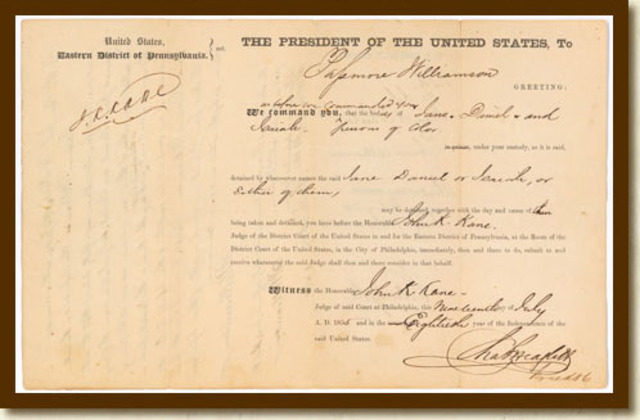 United States,
Eastern District of Pennsylvania. } sct.
THE PRESIDENT OF THE UNITED STATES, To
Passmore Williamson
GREETING:
as before we commanded you
We command you, that the bodies of Jane, Daniel, and
Isaiah. Persons of Color
under your custody, as it is said,
detained by whatsoever names the said Jane Daniel or Isaiah, or
Either of them,
may be detained, together with the day and cause of their
being taken and detained, you have before the Honorable John K. Kane.
Judge of the District Court of the United States in and for the Eastern District of Pennsylvania, at the Room of the
District Court of the United States, in the City of Philadelphia, immediately, then and there to do, submit to and
receive whatsoever the said Judge shall then and there consider in that behalf.
Witness the Honorable John K Kane
Judge of said Court at Philadelphia, this Nineteenth of July
A. D. 1855 and in the Eightieth year of the Independence of the
said United States.